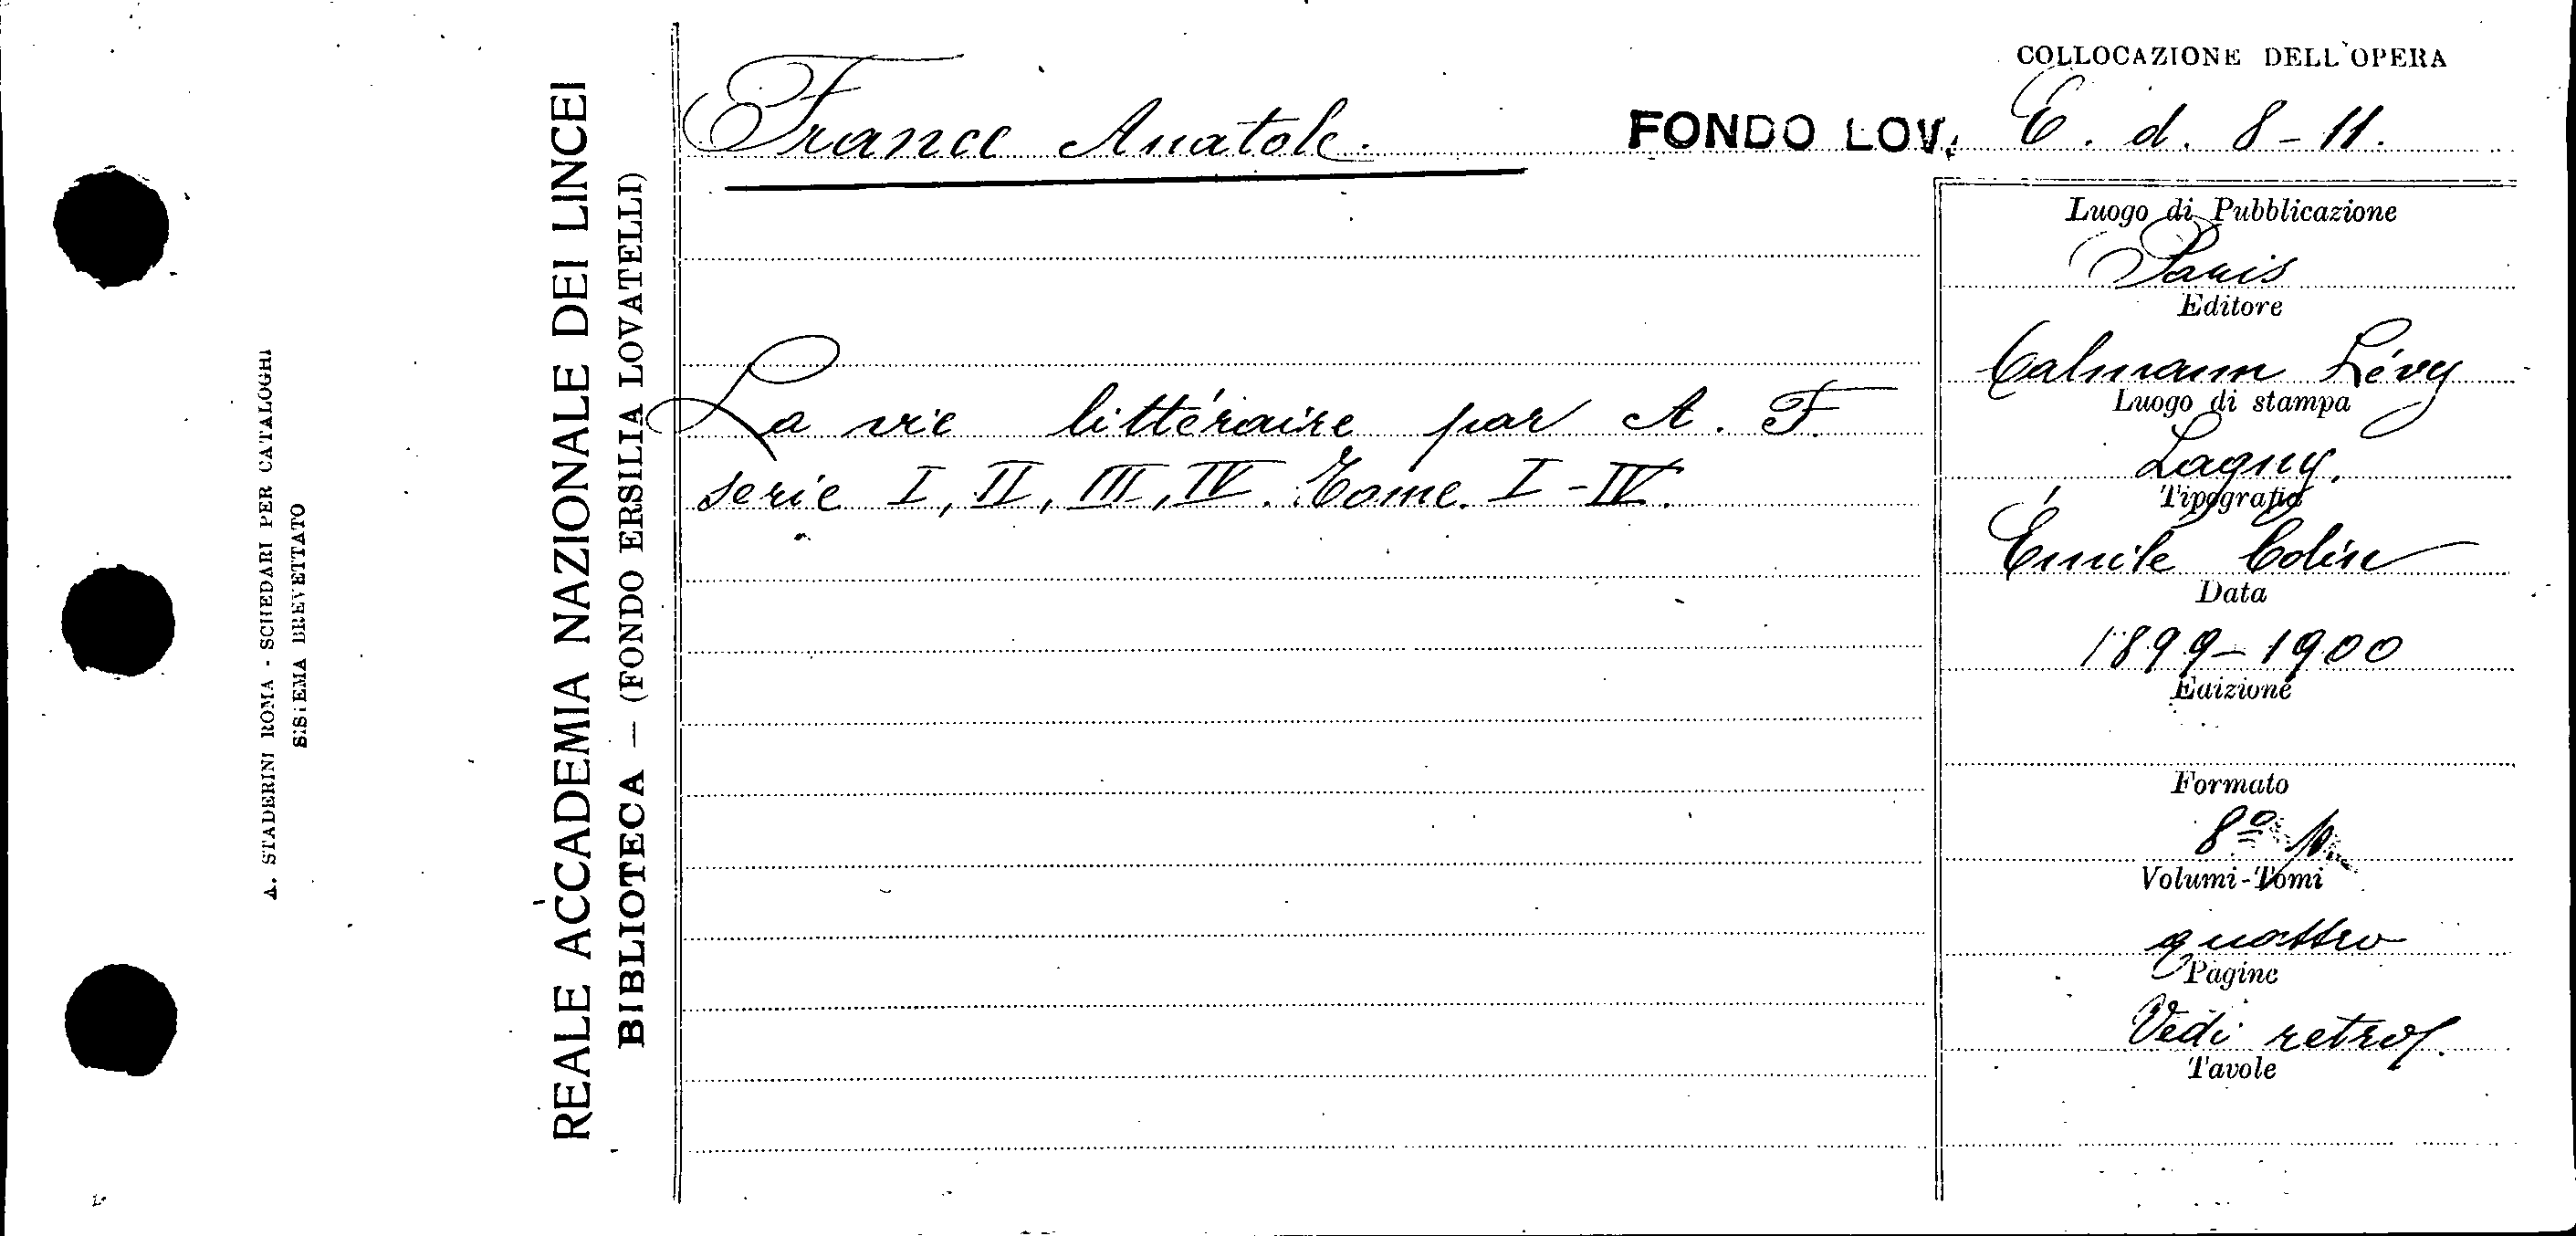 A. STADERINI ROMA - SCHEDARI PER CATALOGHI
SISTEMA BREVETTATO
REALE ACCADEMIA NAZIONALE DEI LINCEI
BIBLIOTECA — (FONDO ERSILIA LOVATELLI)
France Anatole.
La vie littéraire par A. F.
serie I, II, III, IV. Tome. I-IV.
COLLOCAZIONE DELL'OPERA
FONDO LOV. E. d. 8-11.
Luogo di Pubblicazione
Paris
Editore
Calmann Lévy
Luogo di stampa
Lagny.
Tipografia
Émile Colin
Data
1899-1900
Edizione
Formato
8º
Volumi-Tomi
quattro
Pagine
Vedi retro
Tavole